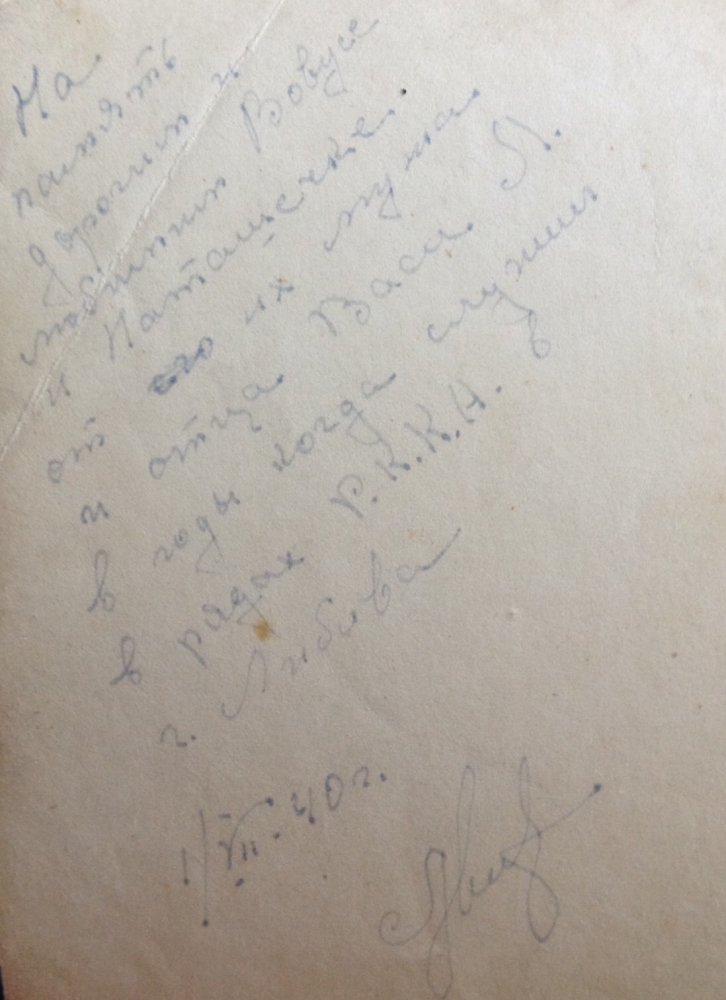 На
память
дорогим и
любимым Вовусе
и Наташечке.
от его их мужа.
и отца Васи Л.
в годы когда служил
в рядах Р.К.К.А. в
г. Либава
1/VII-40 г.